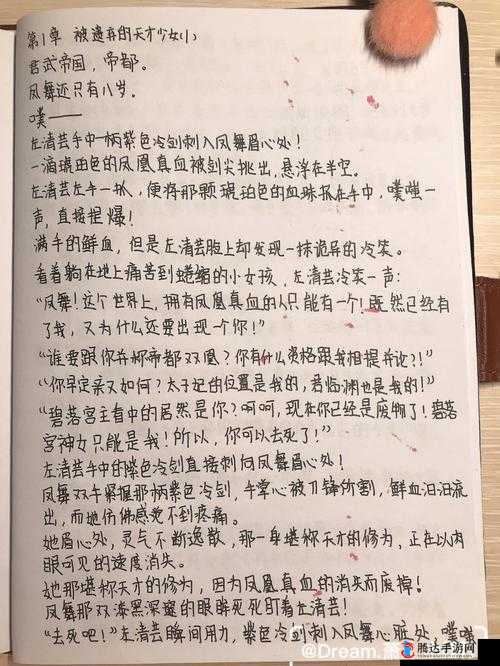 第1章 被遗弃的天才少女(1)
君武帝国，帝都。
凤舞还只有八岁。
噗——
左清芸手中一柄紫色冷剑刺入凤舞眉心处！
一滴琥珀色的凤凰真血被剑尖挑出，悬浮在半空。
左清芸左手一抓，便将那颗琥珀色的血珠抓在手中，噗嗤一
声，直接捏爆！
满手的鲜血，但是左清芸脸上却发现一抹诡异的冷笑。
看着躺在地上痛苦到蜷缩的小女孩，左清芸冷笑一声：
“凤舞！这个世界上，拥有凤凰真血的人只能有一个！既然已经有
了我，又为什么还要出现一个你！”
“谁要跟你并称帝都双凰？你有什么资格跟我相提并论？！”
“你早定亲又如何？太子妃的位置是我的，君临渊也是我的！”
“碧落宫主看中的居然是你？呵呵，现在你已经是废物了！碧落
宫神女只能是我！所以，你可以去死了！”
左清芸手中的紫色冷剑直接刺向凤舞眉心处！
凤舞双手紧握那柄紫色冷剑，手掌心被刀锋所割，鲜血汩汩流
出，而她仿佛感觉不到疼痛。
她眉心处，灵气不断逸散，那一身堪称天才的修为，正在以肉
眼可见的速度消失。
她那堪称天才的修为，因为凤凰真血的消失而废掉！
凤舞那双漆黑深邃的眼眸死死盯着左清芸！
“去死吧！”左清芸瞬间用力，紫色冷剑刺入凤舞心脏处，噗嗤
@Dream.萧
腾达手游网